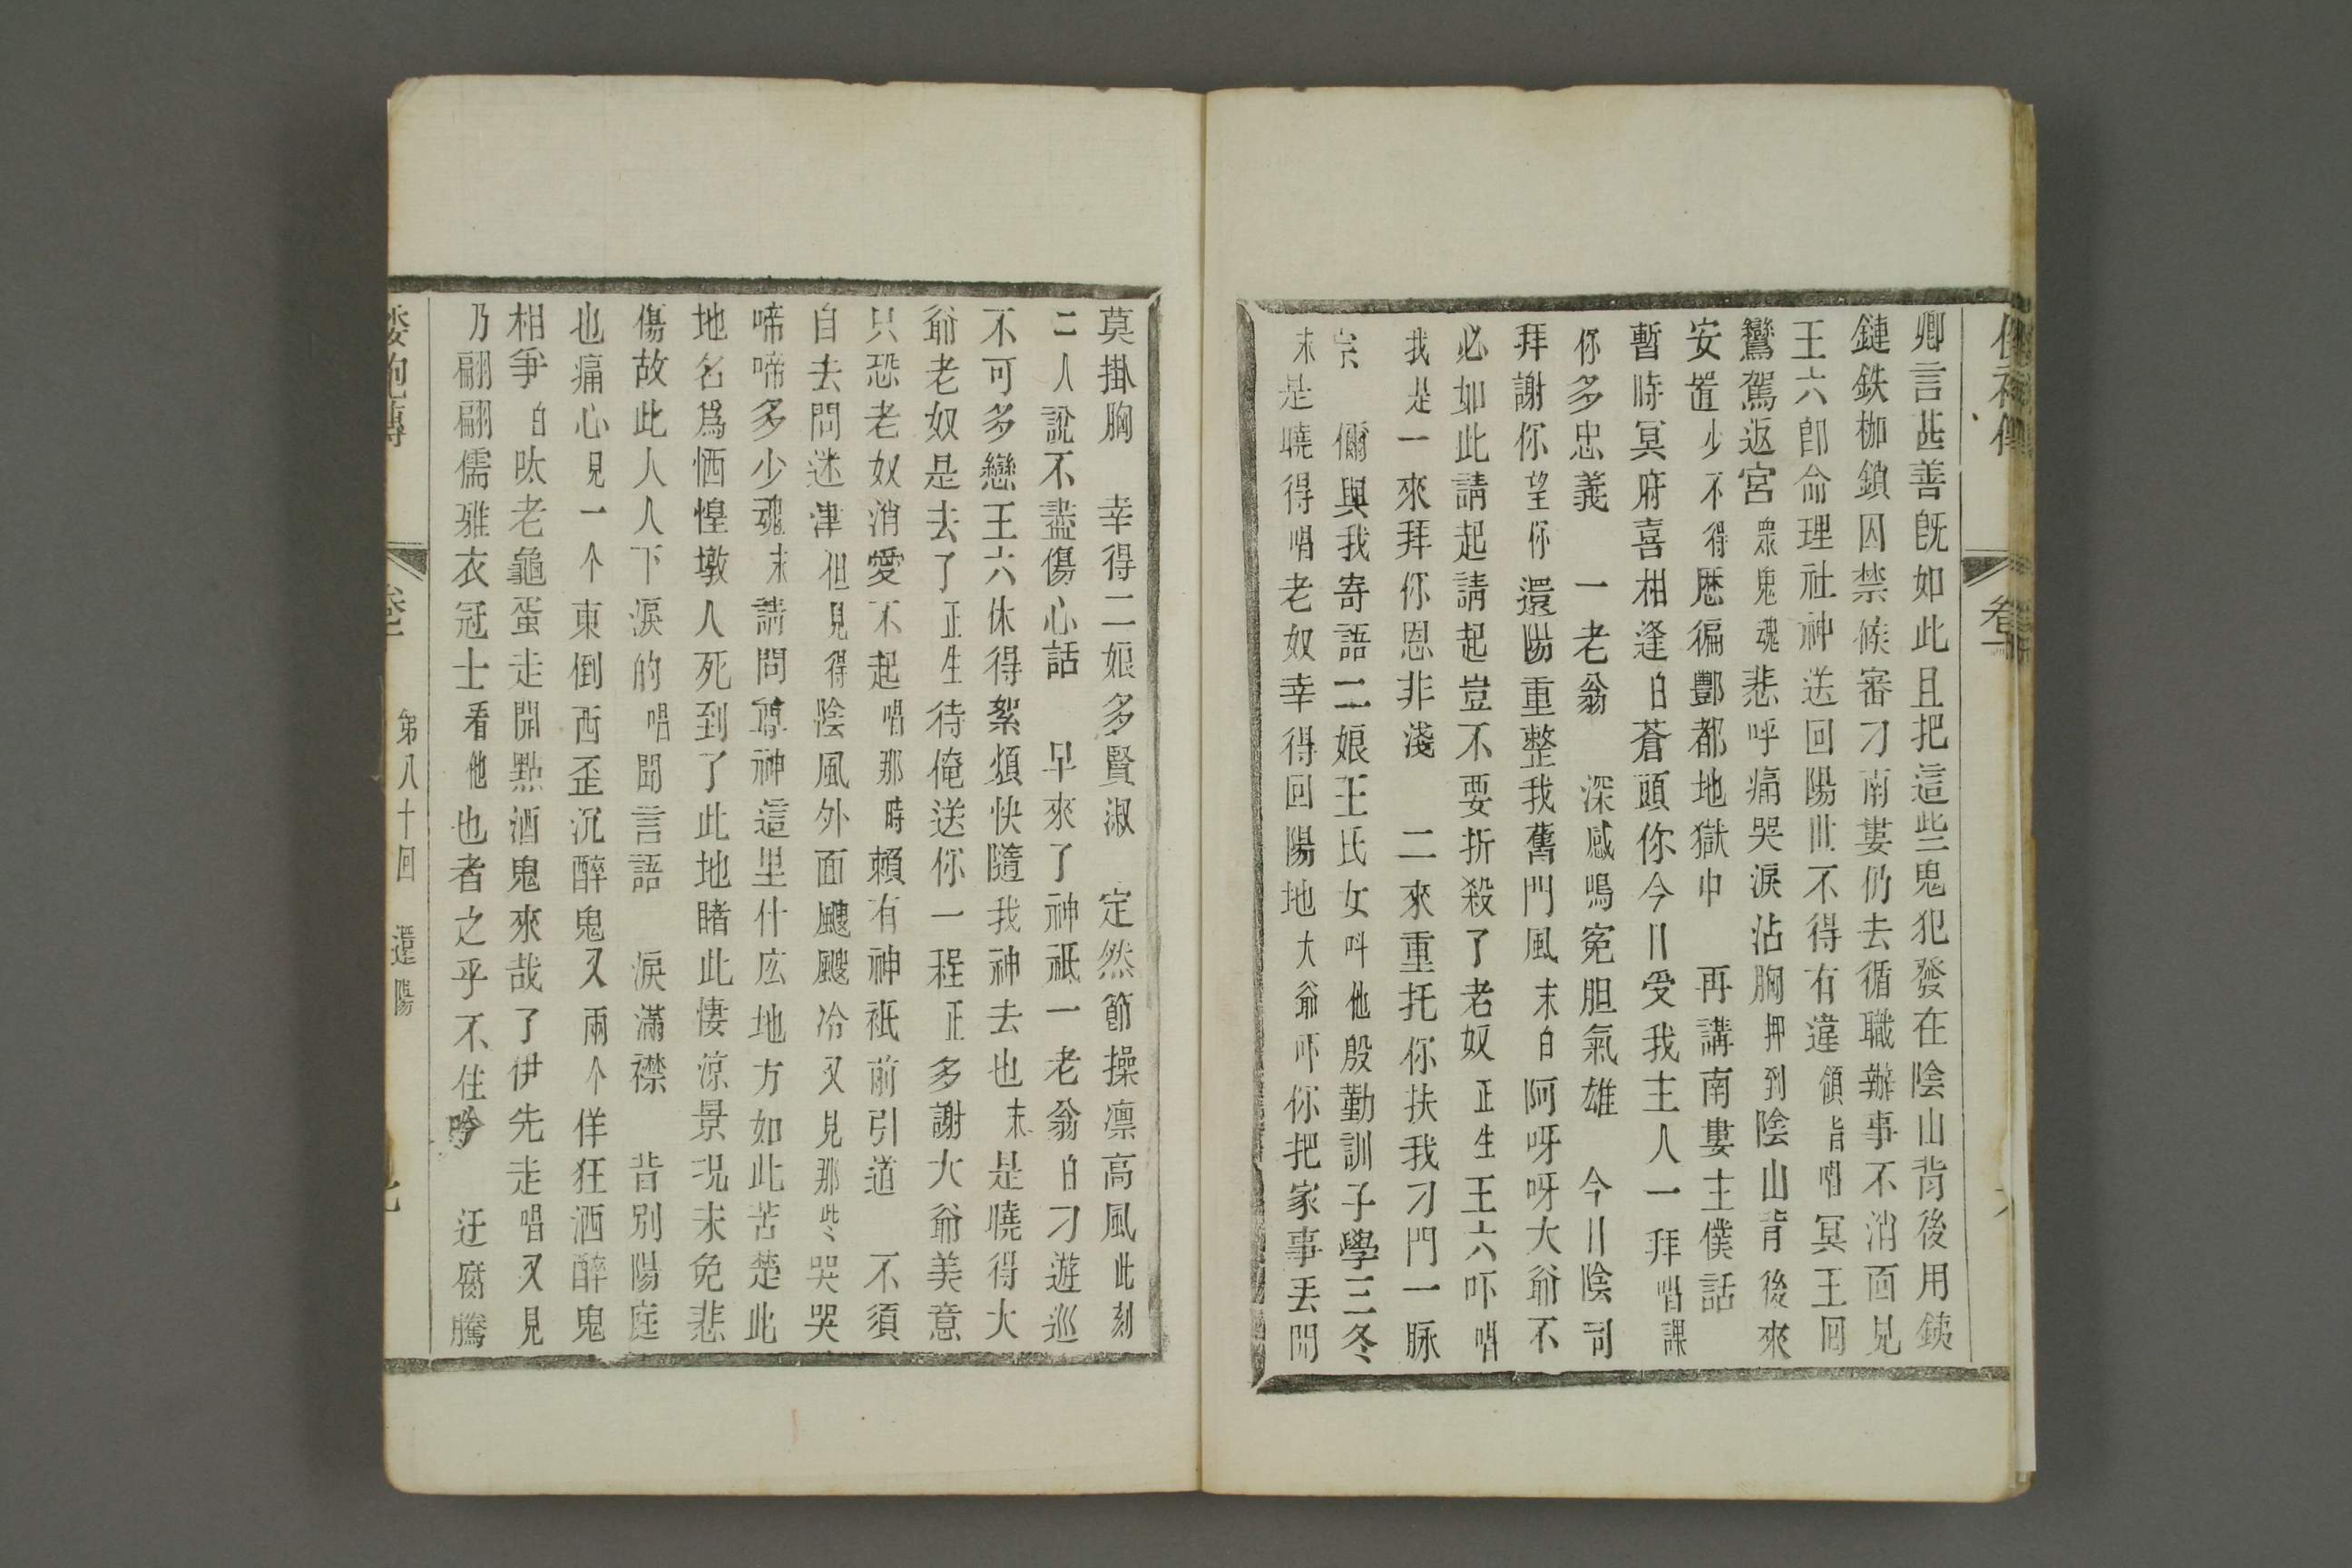 卿言甚善旣如此且把這些鬼犯發在陰山背後用鉄
鏈鉄枷鎖囚禁候審刁南婁仍去循職辦事不消面見
王六卽命理社神送回陽世不得有違領旨唱冥王回
鸞駕返宮眾鬼魂悲呼痛哭淚沾胸押到陰山背後來
安置少不得歷徧酆都地獄中　再講南婁主僕話
暫時冥府喜相逢白蒼頭你今日受我主人一拜唱課
你多忠義　一老翁　深感鳴寃胆氣雄　今日陰司
拜謝你望你還陽重整我舊門風末白阿呀呀大爺不
必如此請起請起豈不要折殺了老奴正生王六吓唱
我是一來拜你恩非淺　二來重托你扶我刁門一脉
宗　儞與我寄語二娘王氏女呌他殷勤訓子學三冬
末是曉得唱老奴幸得回陽地大爺吓你把家事丟開
莫掛胸　幸得二娘多賢淑　定然節操凛高風此刻
二人說不盡傷心話　早來了神祗一老翁白刁遊巡
不可多戀王六休得絮煩快隨我神去也末是曉得大
爺老奴是去了正生待俺送你一程正多謝大爺美意
只恐老奴消愛不起唱那時賴有神祗前引道　不須
自去問迷津但見得陰風外面颼颼冷又見那些哭哭
啼啼多少魂末請問尊神這里什庅地方如此苦楚此
地名爲恓惶墩人死到了此地睹此悽涼景況未免悲
傷故此人人下淚的唱聞言語　淚滿襟　昔別陽庭
也痛心見一个東倒西歪沉醉鬼又兩个佯狂洒醉鬼
相爭白呔老龜蛋走開㸃酒鬼來哉了伊先走唱又見
乃翩翩儒雅衣冠士看他也者之乎不住吟　迂腐騰
卷
第八十回　還陽